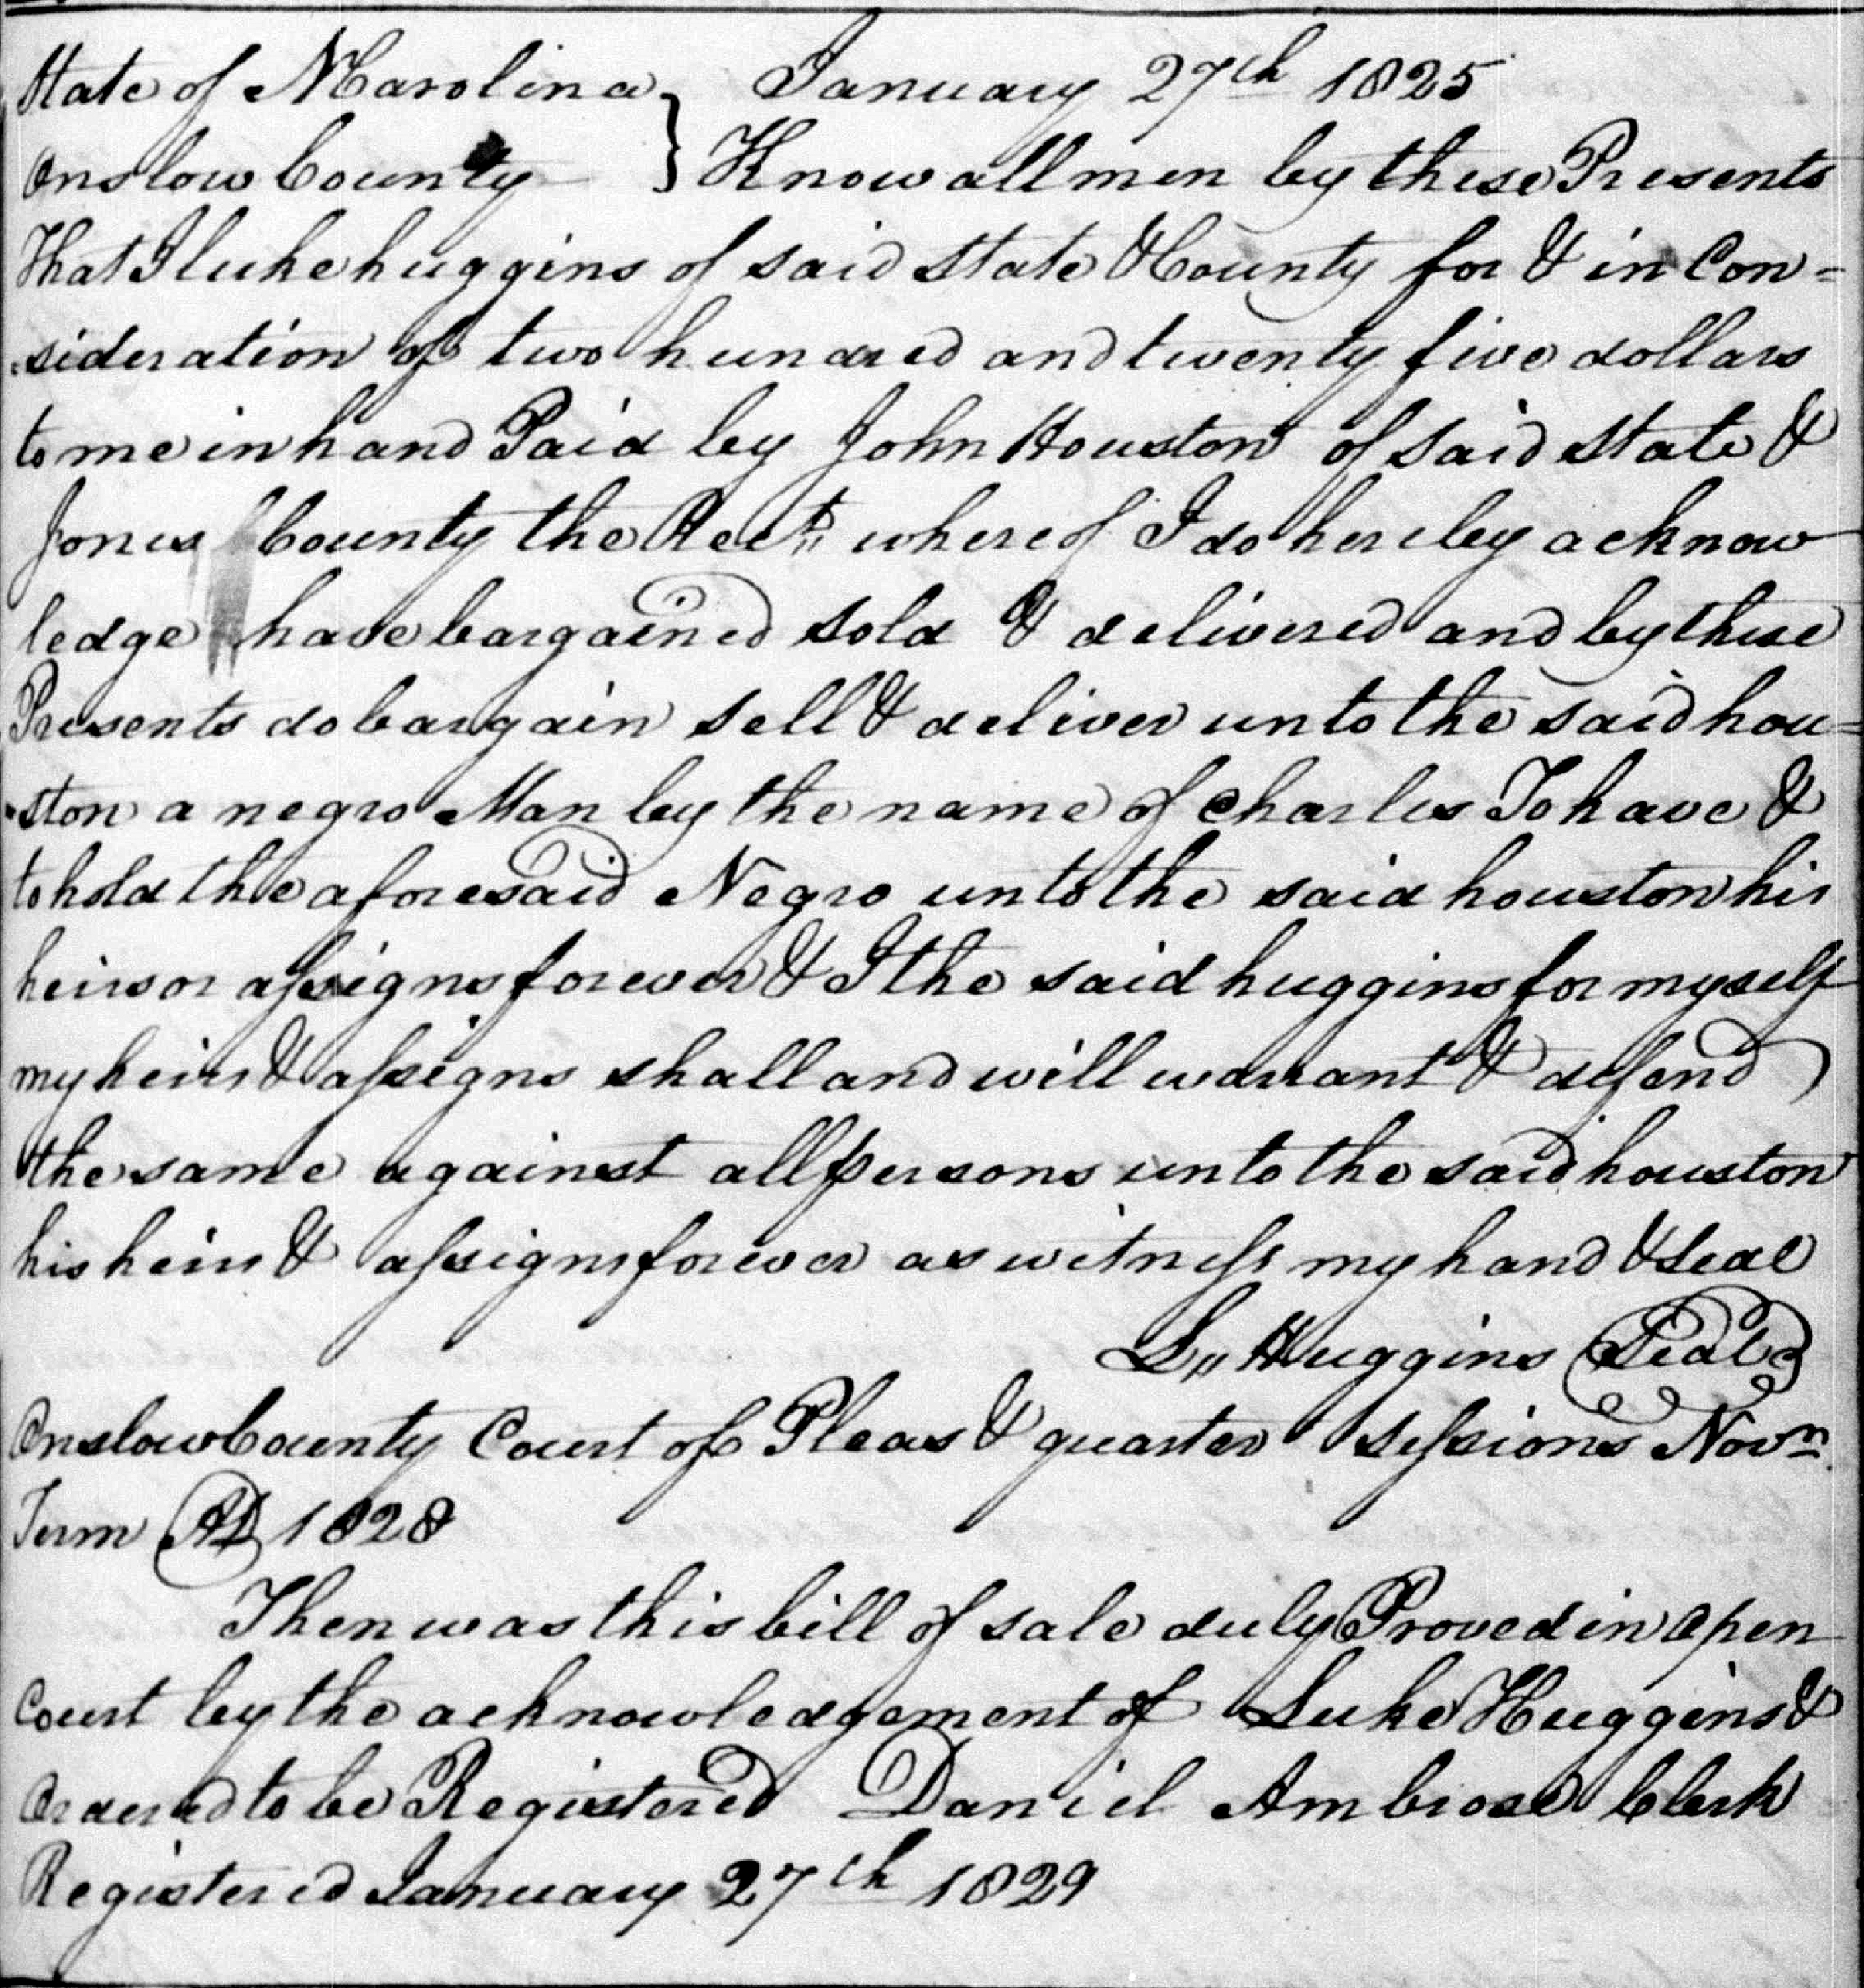 State of NCarolina } January 27th 1825
Onslow County } Know all men by these Presents
That I luke huggins of said State & County for & in Con=
=sideration of two hundred and twenty five dollars
to me in hand Paid by John Houston of said State &
Jones County the Rect. whereof I do hereby acknow
ledge have bargained sold & delivered and by these
Presents do bargain sell & deliver unto the said hou=
=ston a negro Man by the name of Charles To have &
to hold the aforesaid Negro unto the said houston his
heirs or assigns forever & I the said huggins for myself
my heirs & assigns shall and will warrant & defend
the same against all persons unto the said houston
his heirs & assigns forever as witness my hand & Seal
L,, Huggins Seal
Onslow County Court of Pleas & quarter sessions Novm
Term AD 1828
Then was this bill of sale duly Proved in Open
Court by the acknowledgement of Luke Huggins &
Ordered to be Registered Daniel Ambrose Clerk
Registered January 27th 1829